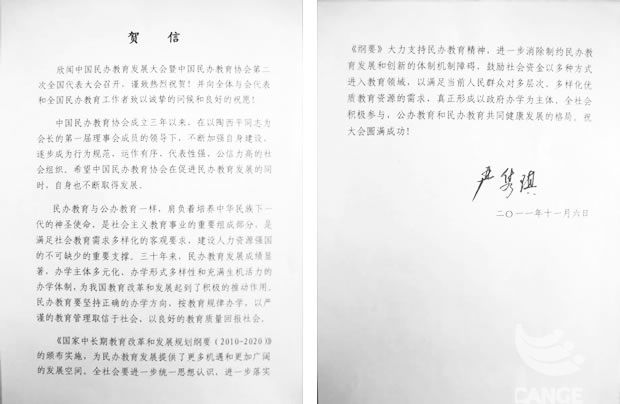 贺 信
欣闻中国民办教育发展大会暨中国民办教育协会第二
次全国代表大会召开，谨致热烈祝贺！并向全体与会代表
和全国民办教育工作者致以诚挚的问候和良好的祝愿！
中国民办教育协会成立三年以来，在以陶西平同志为
会长的第一届理事会成员的领导下，不断加强自身建设，
逐步成为行为规范，运作有序，代表性强，公信力高的社
会组织。希望中国民办教育协会在促进民办教育发展的同
时，自身也不断取得发展。
民办教育与公办教育一样，肩负着培养中华民族下一
代的神圣使命，是社会主义教育事业的重要组成部分，是
满足社会教育需求多样化的客观要求，建设人力资源强国
的不可缺少的重要支撑。三十年来，民办教育发展成绩显
著，办学主体多元化、办学形式多样性和充满生机活力的
办学体制，为我国教育改革和发展起到了积极的推动作用。
民办教育要坚持正确的办学方向，按教育规律办学，以严
谨的教育管理取信于社会，以良好的教育质量回报社会。
《国家中长期教育改革和发展规划纲要（2010-2020）》
的颁布实施，为民办教育发展提供了更多机遇和更加广阔
的发展空间。全社会要进一步统一思想认识，进一步落实
《纲要》大力支持民办教育精神，进一步消除制约民办教
育发展和创新的体制机制障碍，鼓励社会资金以多种方式
进入教育领域，以满足当前人民群众对多层次、多样化优
质教育资源的需求，真正形成以政府办学为主体、全社会
积极参与，公办教育和民办教育共同健康发展的格局。祝
大会圆满成功！
严隽琪
二〇一一年十一月六日
CANGE